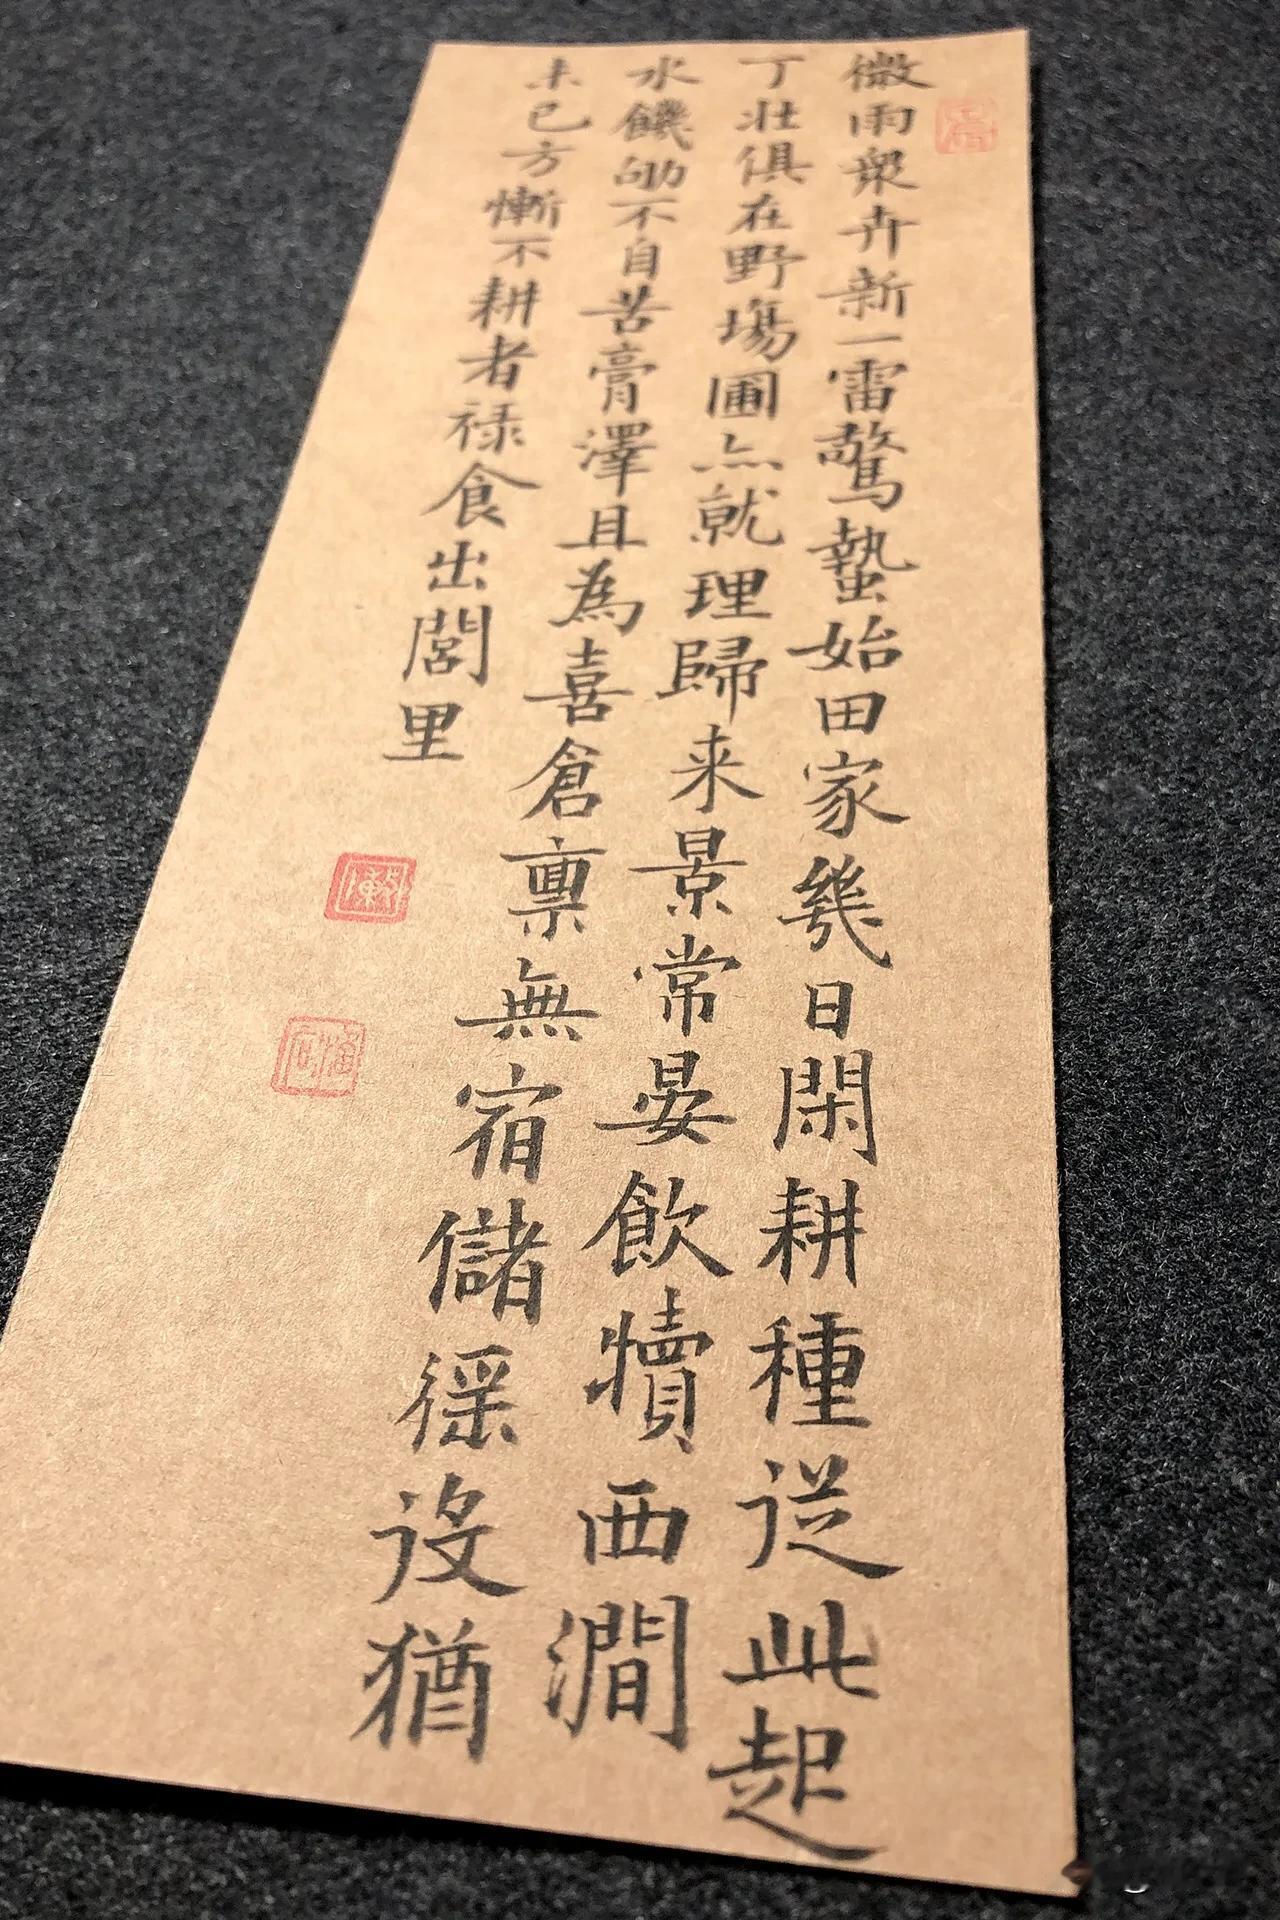 微雨衆卉新一雷驚蟄始田家幾日閑耕種從此起
丁壯俱在野場圃亦就理歸来景常晏飲犢西澗
水饑劬不自苦膏澤且為喜倉禀無宿儲徭役猶
未已方慚不耕者禄食出閭里